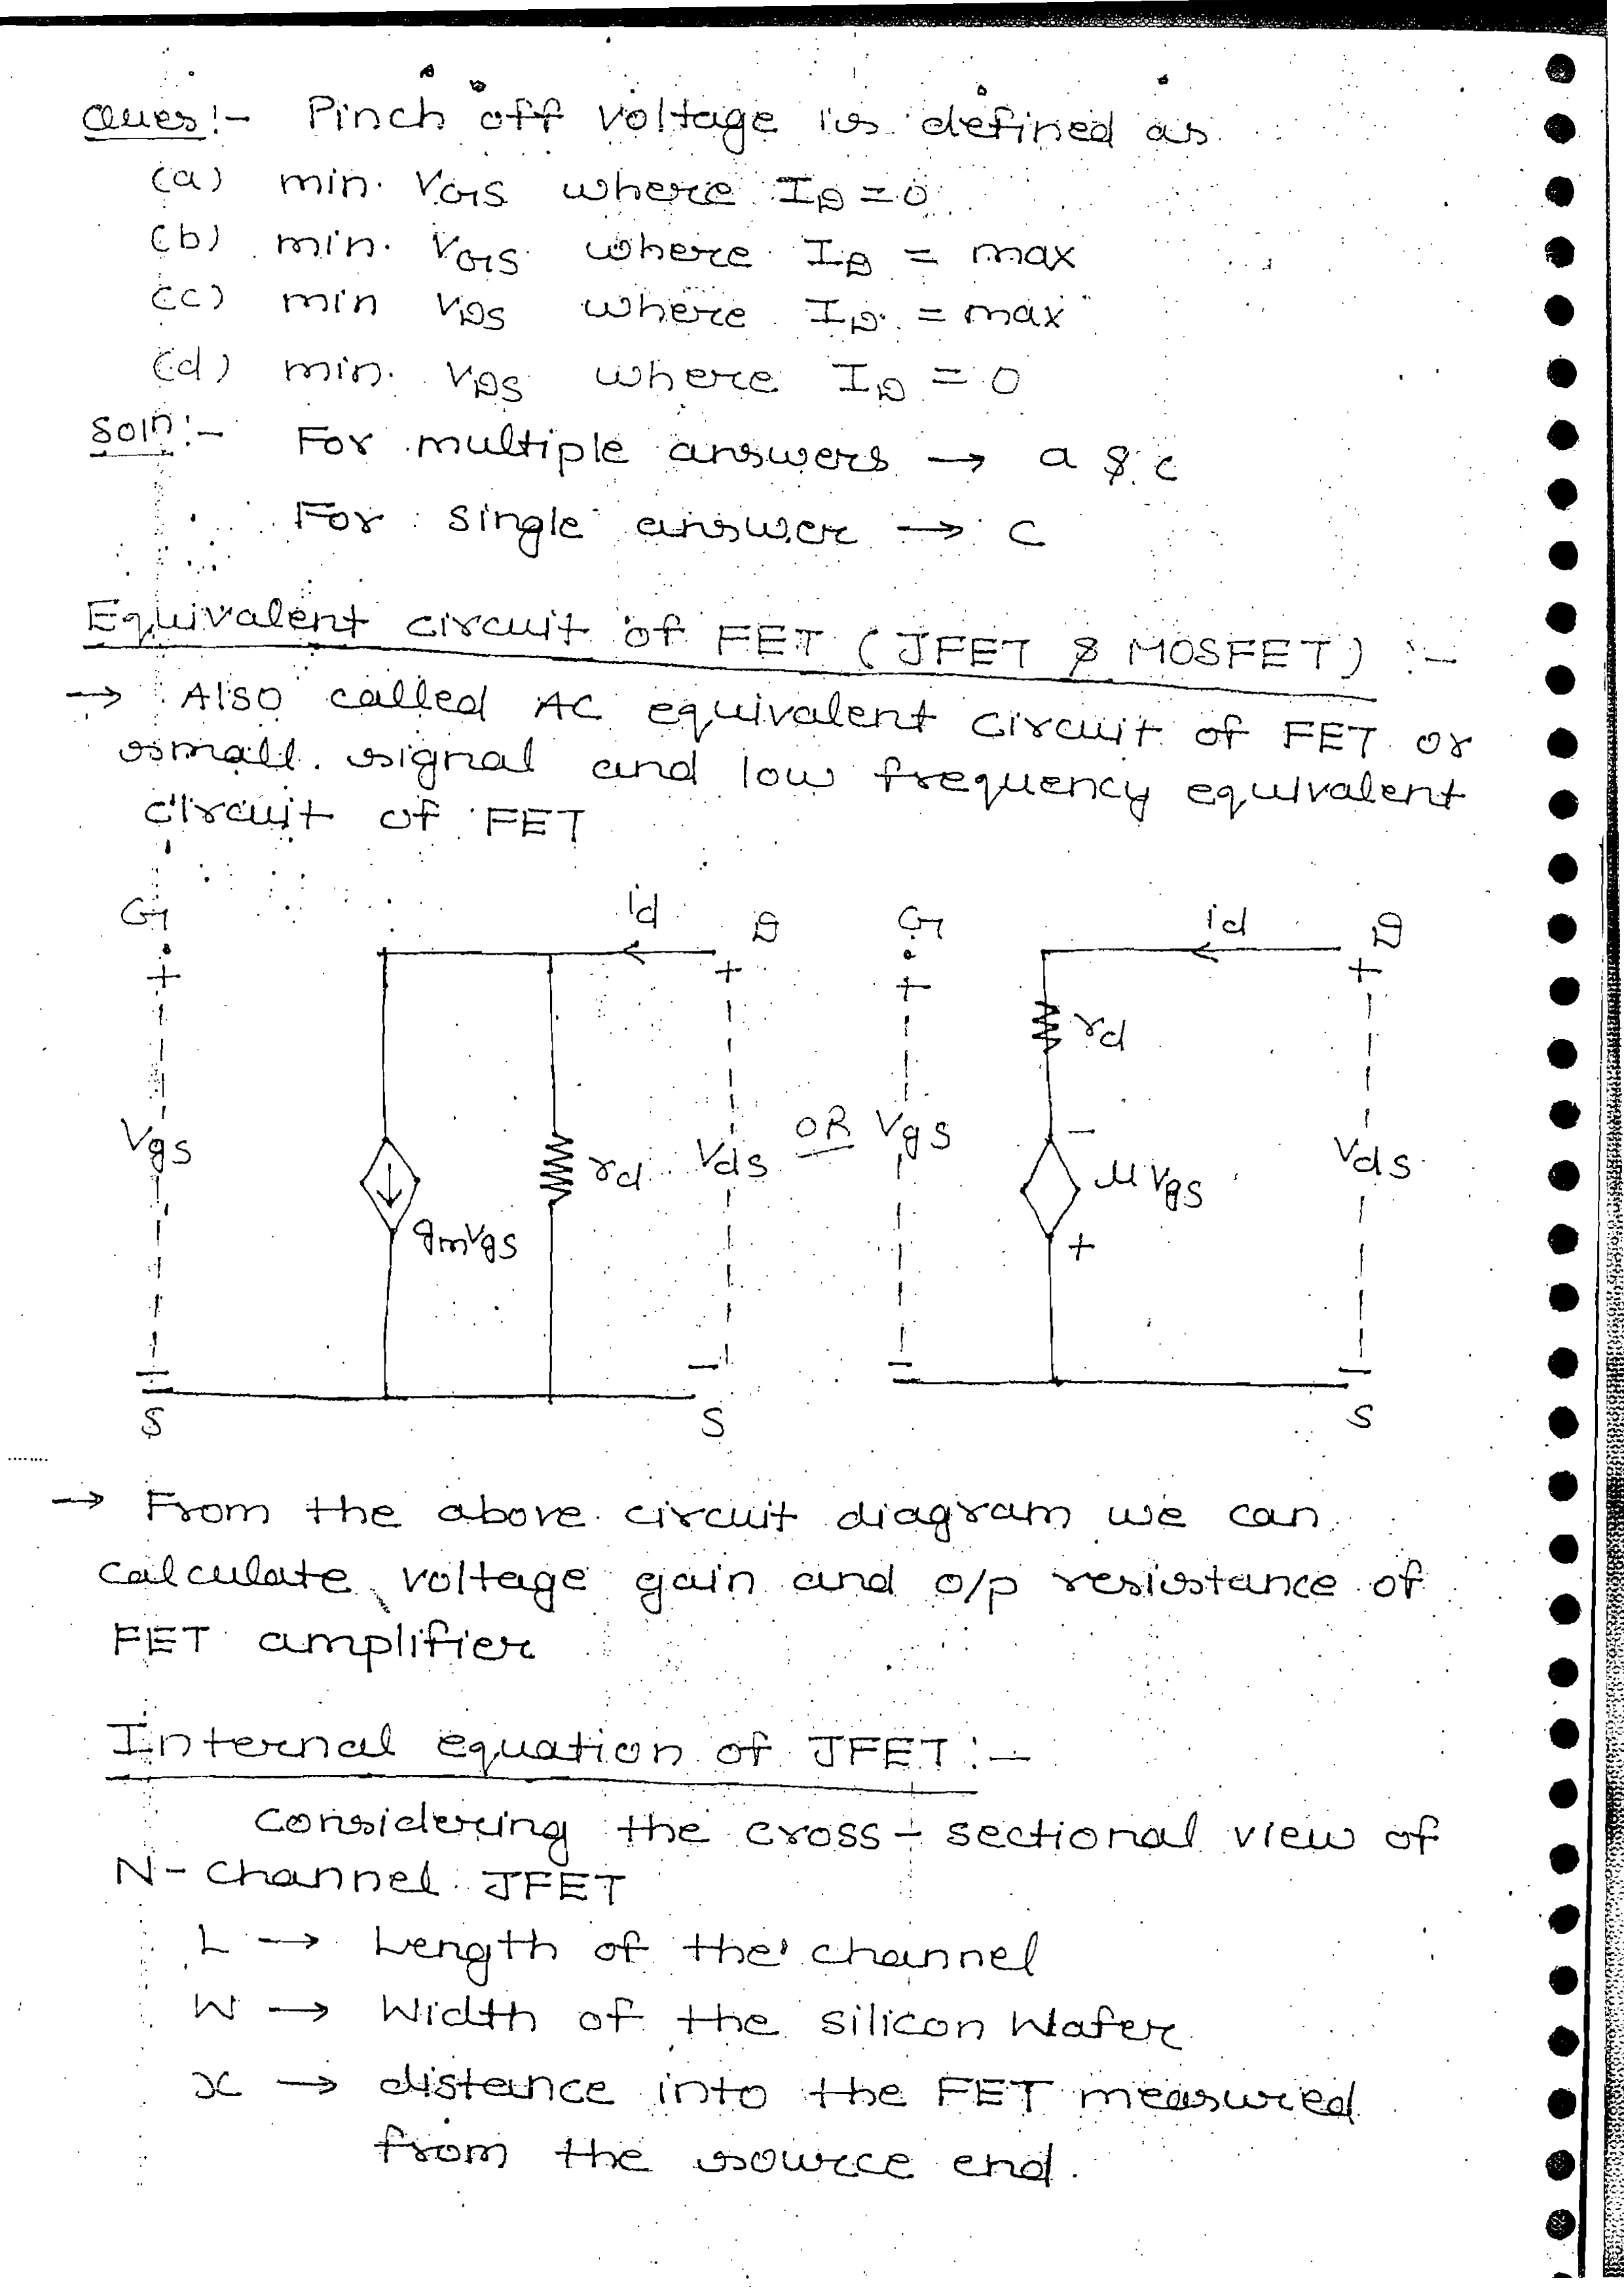 Ques:- Pinch off voltage is defined as
(a) min. VGS where ID = 0
(b) min. VGS where ID = max
(c) min VDS where ID = max
(d) min. VDS where ID = 0
Soln:- For multiple answers → a & c
For single answer → c
Equivalent circuit of FET (JFET & MOSFET) :-
→ Also called AC equivalent circuit of FET or
small signal and low frequency equivalent
circuit of FET
G id D G id D
+ + + +
rd
Vgs rd Vds OR Vgs - μVgs Vds
gmVgs +
- - - -
S S S
→ From the above circuit diagram we can
calculate voltage gain and o/p resistance of
FET amplifier
Internal equation of JFET :-
Considering the cross-sectional view of
N-channel JFET
L → Length of the channel
W → Width of the silicon Wafer
x → distance into the FET measured
from the source end.